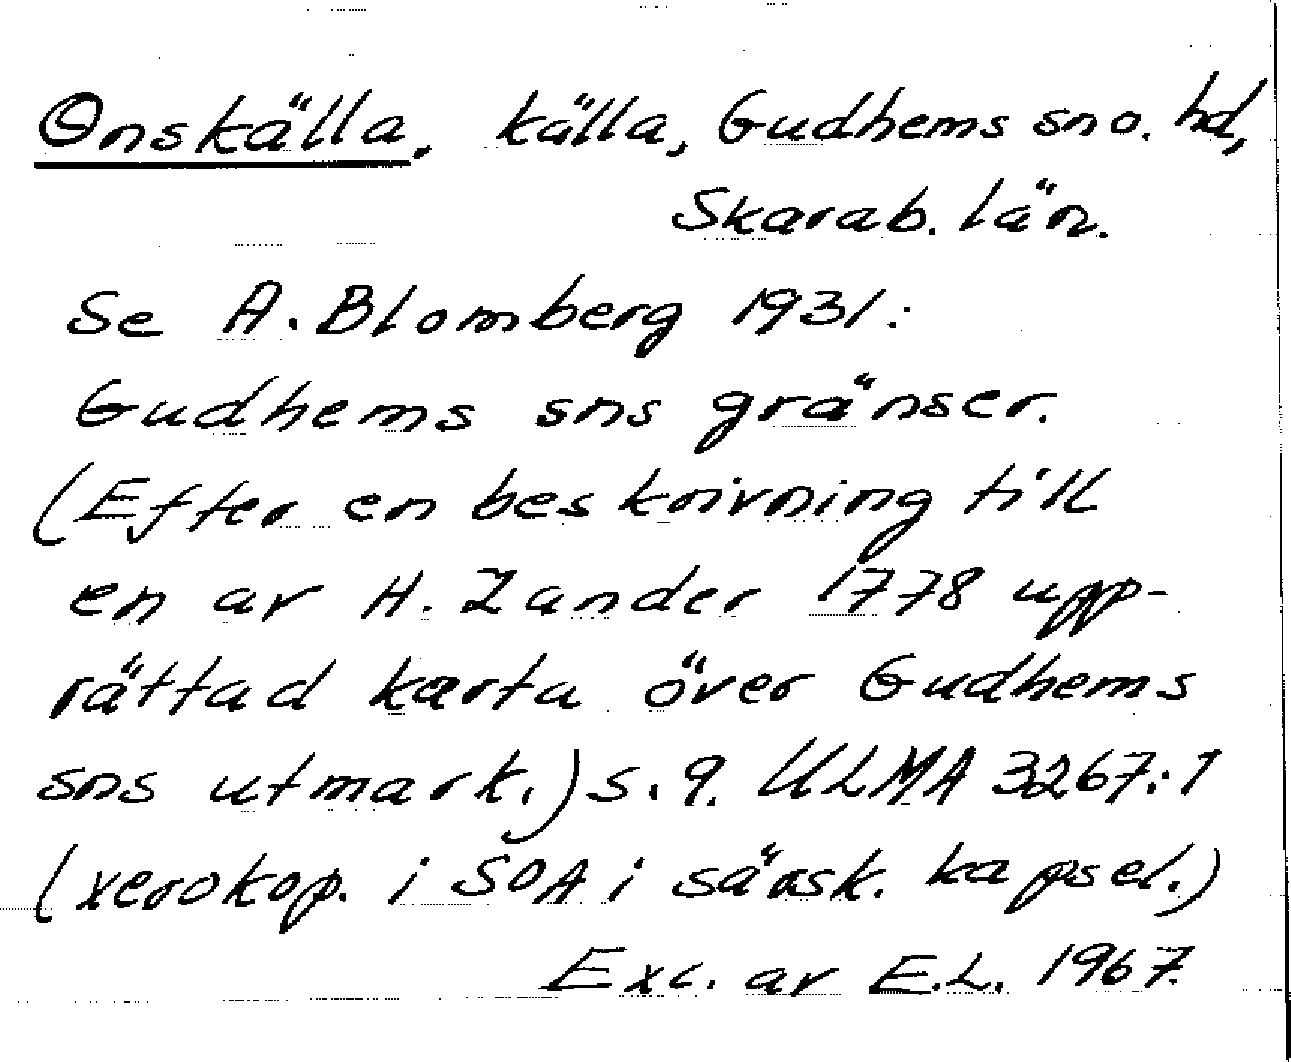 Onskälla, källa, Gudhems sn o. hd,
Skarab. län.
Se A. Blomberg 1931:
Gudhems sns gränser.
(Efter en beskrivning till
en av H. Zander 1778 upp-
rättad karta över Gudhems
sns utmark.) s. 9. ULMA 3267:1
(xerokop. i SOA i särsk. kapsel.)
Exc. av E.L. 1967.